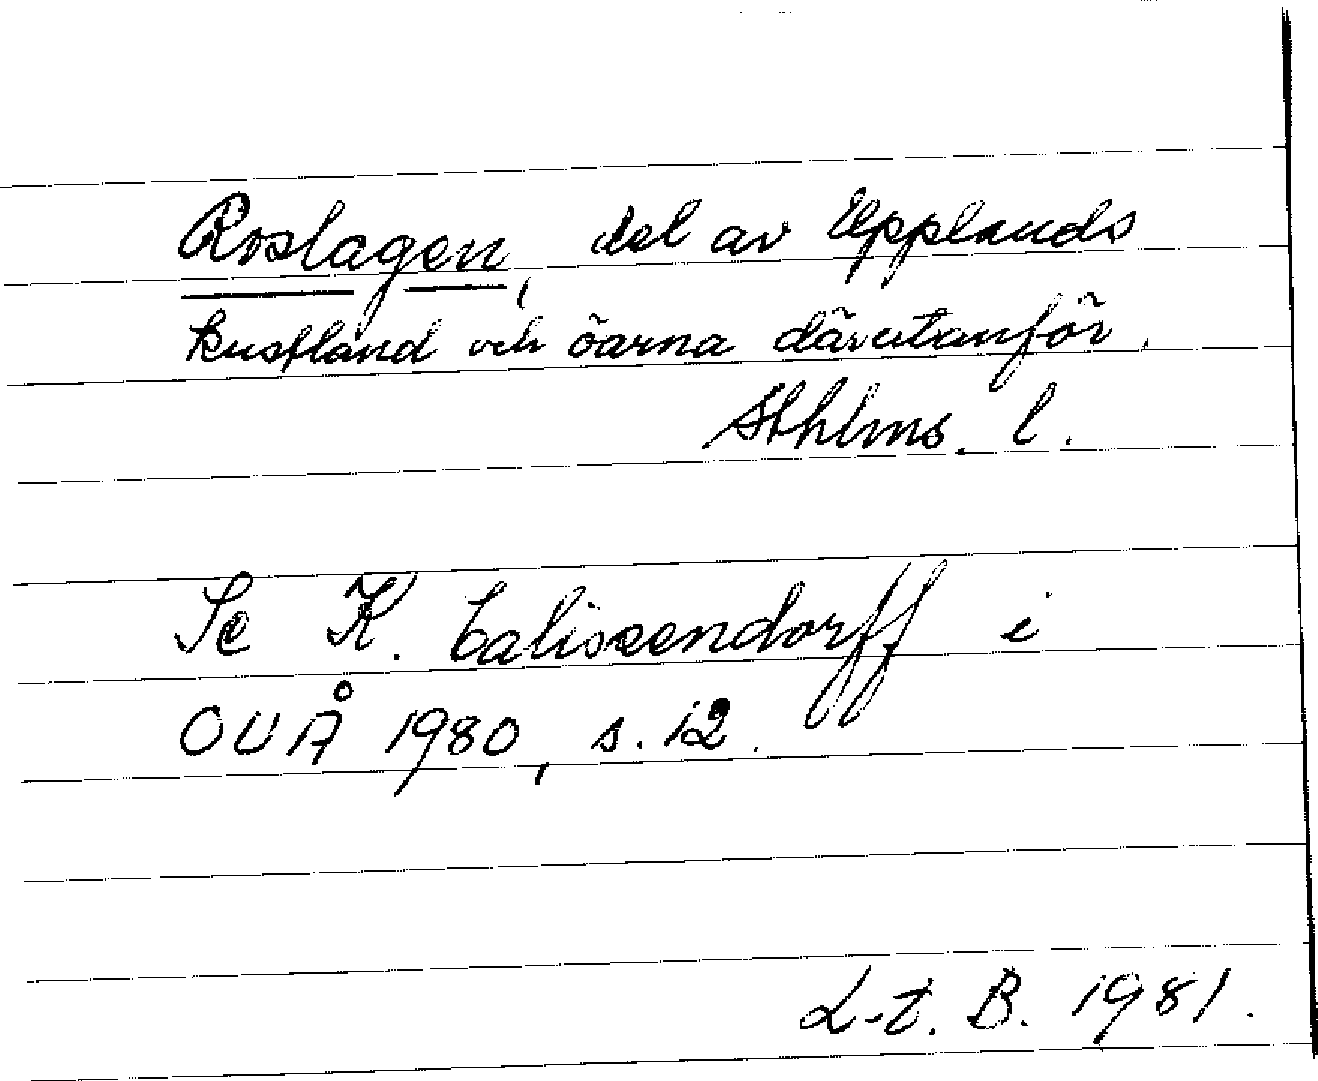 Roslagen, del av Upplands
kustland och öarna därutanför.
Sthlms. l.
Se K. Calissendorff i
OUÅ 1980, s. 12.
L-t. B. 1981.